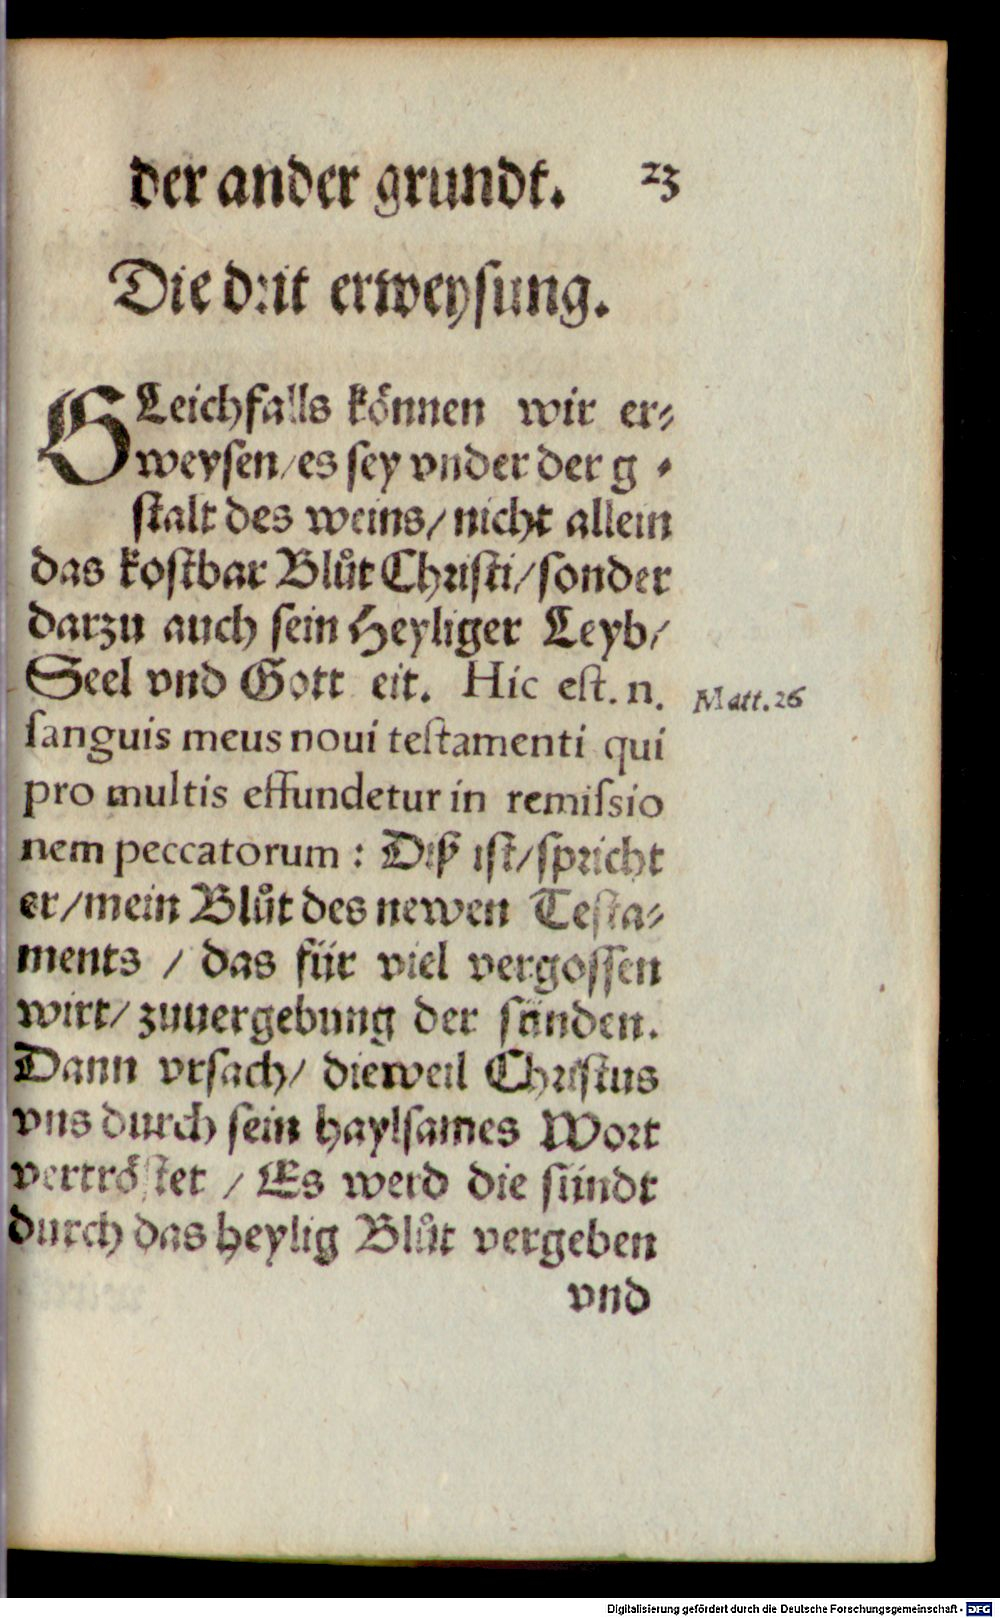 der ander grundt. 23
Die drit erweysung.
GLeichfalls können wir er⸗
weysen/es sey vnder der g ⸗
stalt des weins/nicht allein
das kostbar Blůt Christi/sonder
darzu auch sein Heyliger Leyb/
Seel vnd Gott eit. Hic est. n.
Matt. 26
sanguis meus noui testamenti qui
pro multis effundetur in remissio
nem peccatorum : Diß ist/spricht
er/mein Blůt des newen Testa⸗
ments / das für viel vergossen
wirt/ zuuergebung der sünden.
Dann vrsach/ dieweil Christus
vns durch sein haylsames Wort
vertröstet / Es werd die sündt
durch das heylig Blůt vergeben
vnd
Digitalisierung gefördert durch die Deutsche Forschungsgemeinschaft - DFG